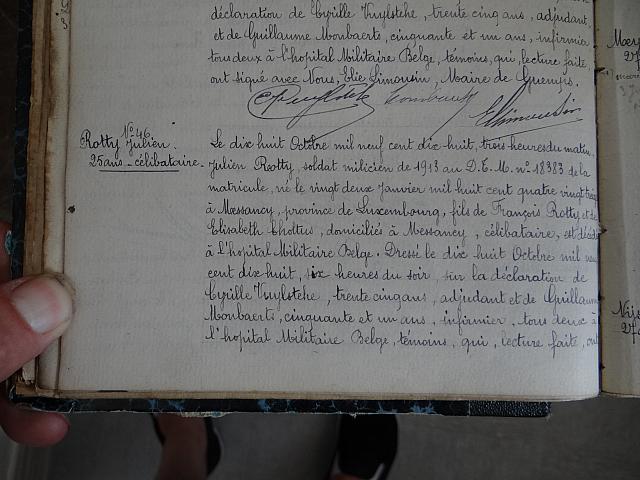 déclaration de Cyrille Vuylsteke, trente cinq ans, adjudant,
et de Guillaume Monbaerts, cinquante et un ans, infirmier
tous deux à l'hopital Militaire Belge, témoins, qui, lecture faite
ont signé avec Nous, Elie Limousin, Maire de Guemps.
N° 46.
Rotty Julien.
25 ans - célibataire.
Le dix huit Octobre mil neuf cent dix-huit, trois heures du matin,
Julien Rotty, soldat milicien de 1913 au D.E.M. n° 18383 de la
matricule, né le vingt deux Janvier mil huit cent quatre vingt treize
à Messancy, province de Luxembourg, fils de François Rotty et de
Elisabeth, domiciliés à Messancy, célibataire, est décédé
à l'hopital Militaire Belge. Dressé le dix huit Octobre mil neuf
cent dix-huit, six heures du soir, sur la déclaration de
Cyrille Vuylsteke, trente cinq ans, adjudant et de Guillaume
Monbaerts, cinquante et un ans, infirmier, tous deux à
l'hopital Militaire Belge, témoins, qui, lecture faite, ont